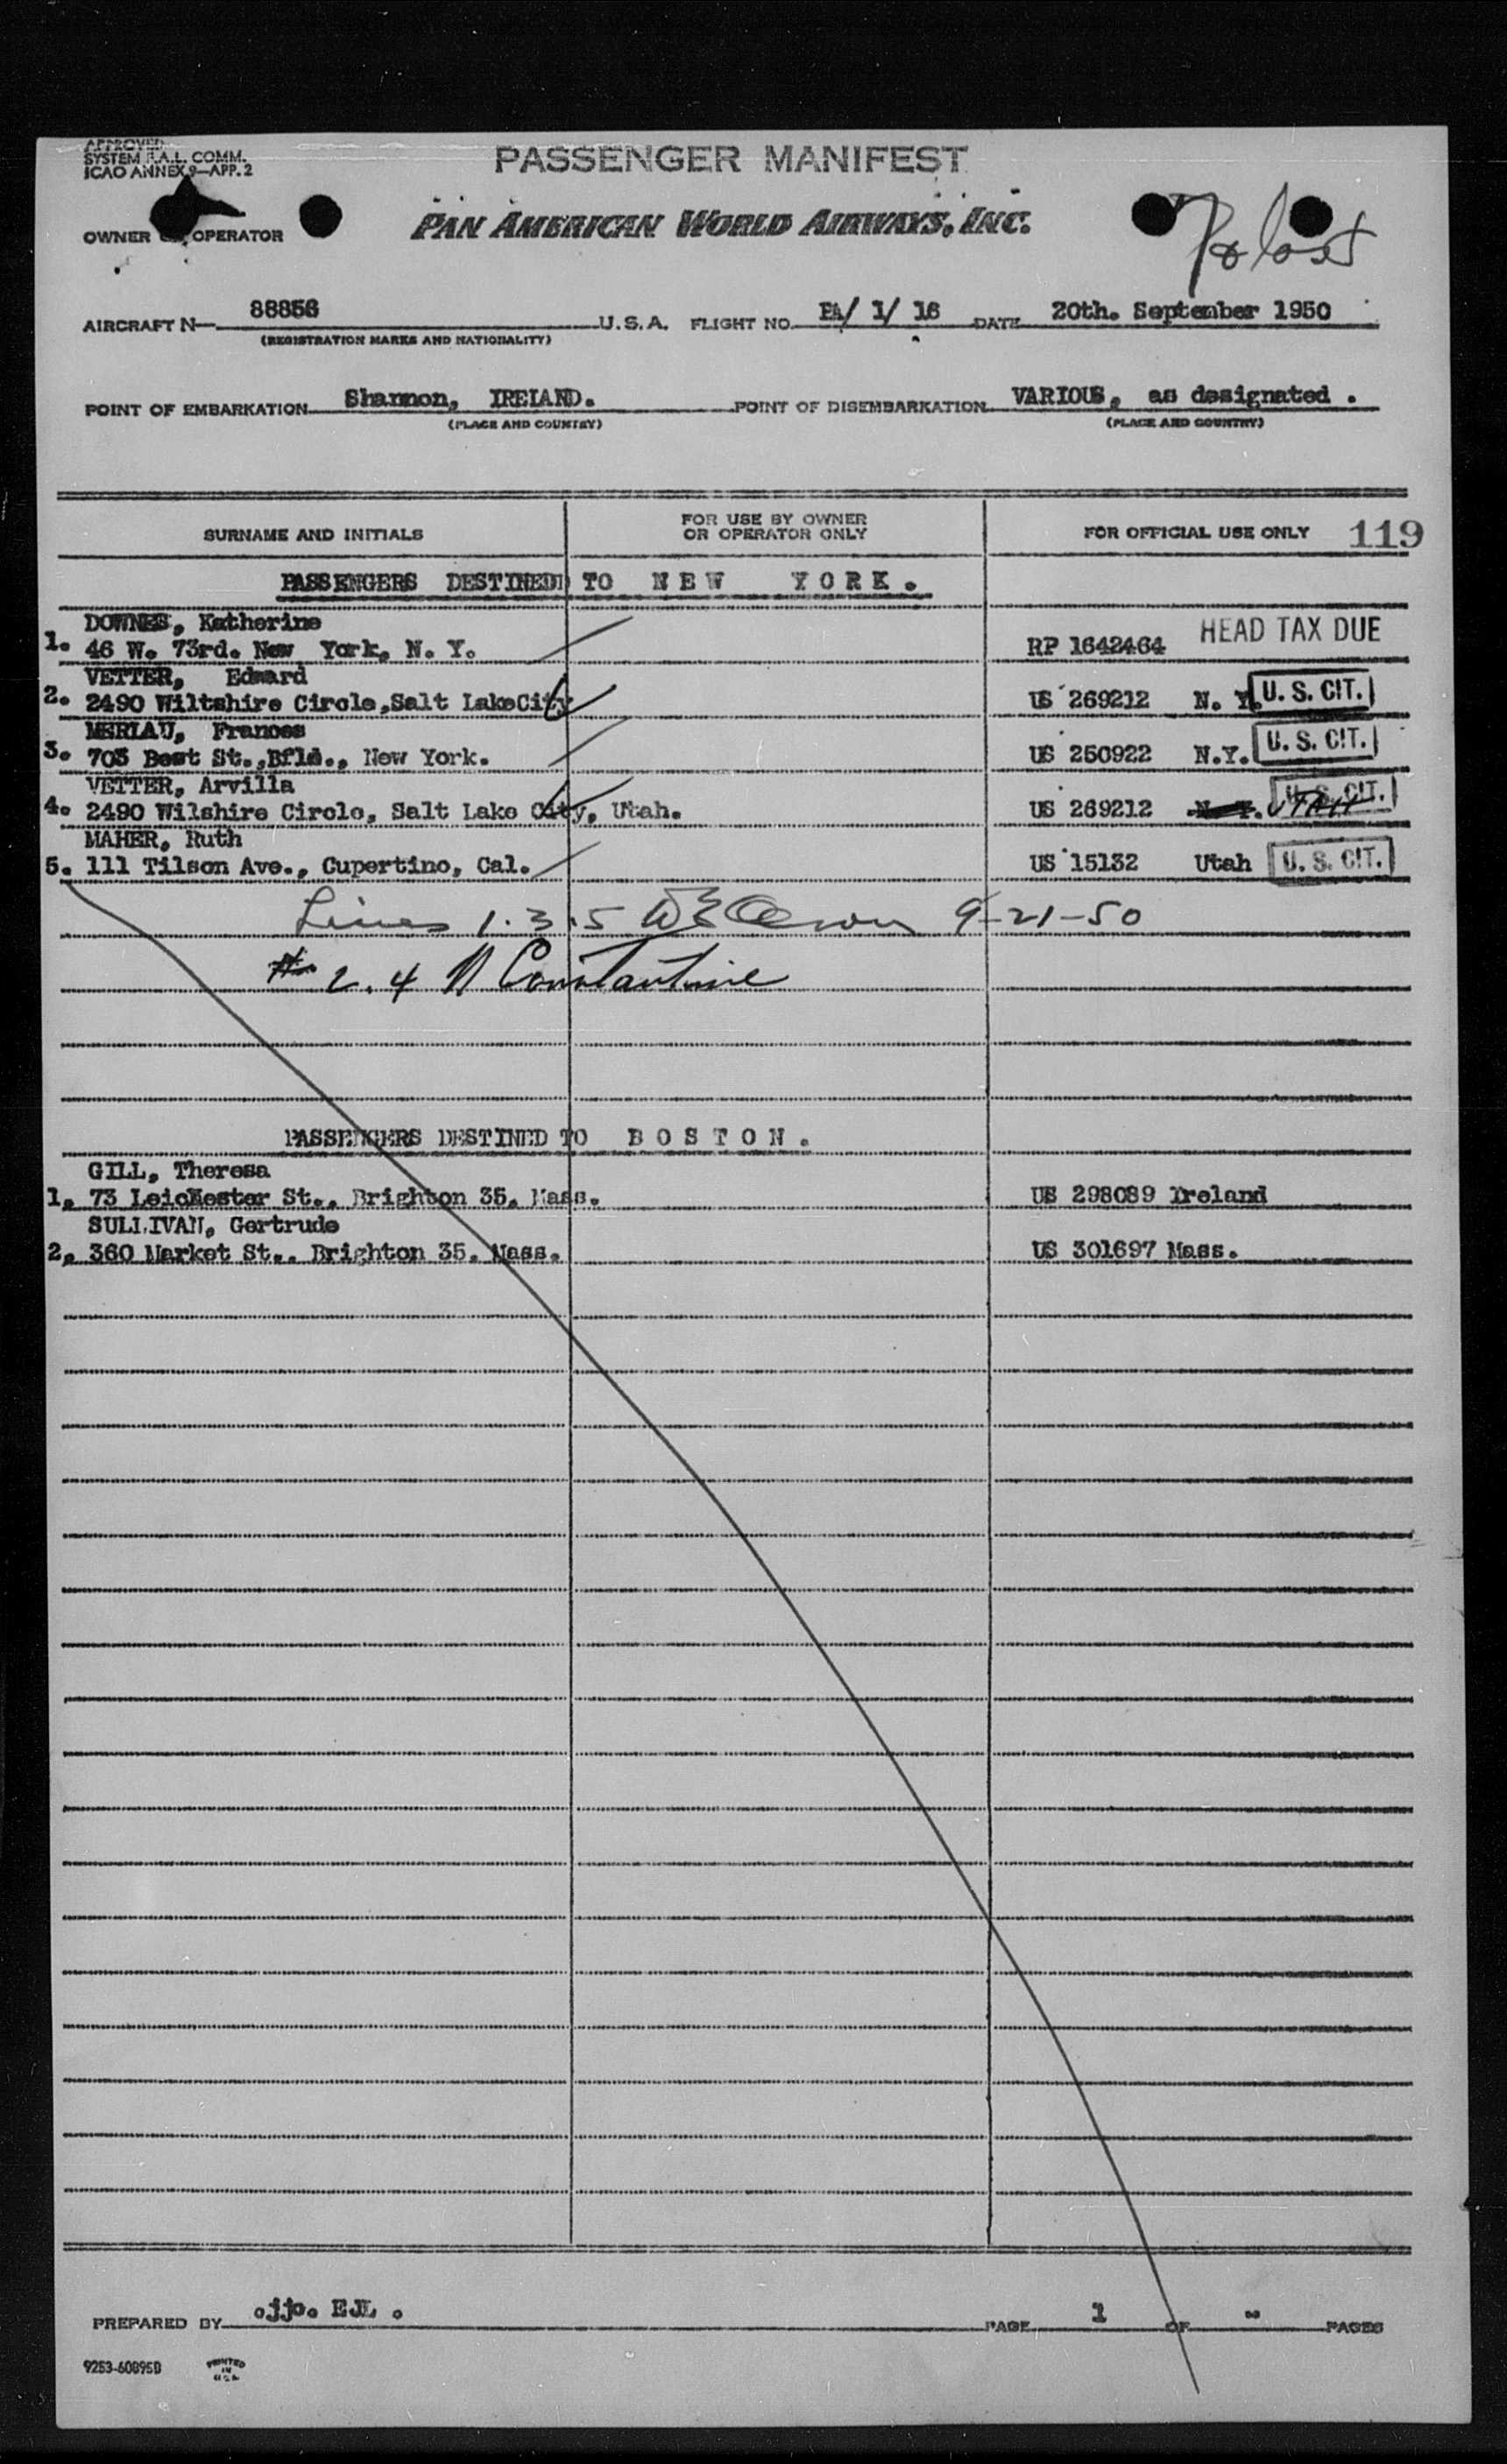 APPROVED
SYSTEM F.A.L. COMM.
ICAO ANNEX 9—APP. 2
PASSENGER MANIFEST
OWNER OPERATOR
PAN AMERICAN WORLD AIRWAYS, INC.
AIRCRAFT N— 88856 U.S.A. FLIGHT NO. PA/ 1/ 16 DATE 20th. September 1950
(REGISTRATION MARKS AND NATIONALITY)
POINT OF EMBARKATION Shannon, IRELAND. POINT OF DISEMBARKATION VARIOUS, as designated .
(PLACE AND COUNTRY) (PLACE AND COUNTRY)
SURNAME AND INITIALS FOR USE BY OWNER OR OPERATOR ONLY FOR OFFICIAL USE ONLY 119
PASSENGERS DESTINED TO NEW YORK.
DOWNES, Katherine
1. 46 W. 73rd. New York, N. Y. RP 1642464 HEAD TAX DUE
VETTER, Edward
2. 2490 Wiltshire Circle,Salt LakeCity US 269212 N. Y. U. S. CIT.
MERLAU, Frances
3. 703 Best St.,Bflo., New York. US 250922 N.Y. U. S. CIT.
VETTER, Arvilla
4. 2490 Wilshire Circle, Salt Lake City, Utah. US 269212 N. Y. UTAH U. S. CIT.
MAHER, Ruth
5. 111 Tilson Ave., Cupertino, Cal. US 15132 Utah U. S. CIT.
Lines 1.3.5 9-21-50
# 2.4 N Constantine
PASSENGERS DESTINED TO BOSTON.
GILL, Theresa
1. 73 Leichester St., Brighton 35, Mass. US 298089 Ireland
SULLIVAN, Gertrude
2. 360 Market St., Brighton 35, Mass. US 301697 Mass.
PREPARED BY ojjo. EJL . PAGE 1 OF - PAGES
9253-60895B PRINTED IN U.S.A.